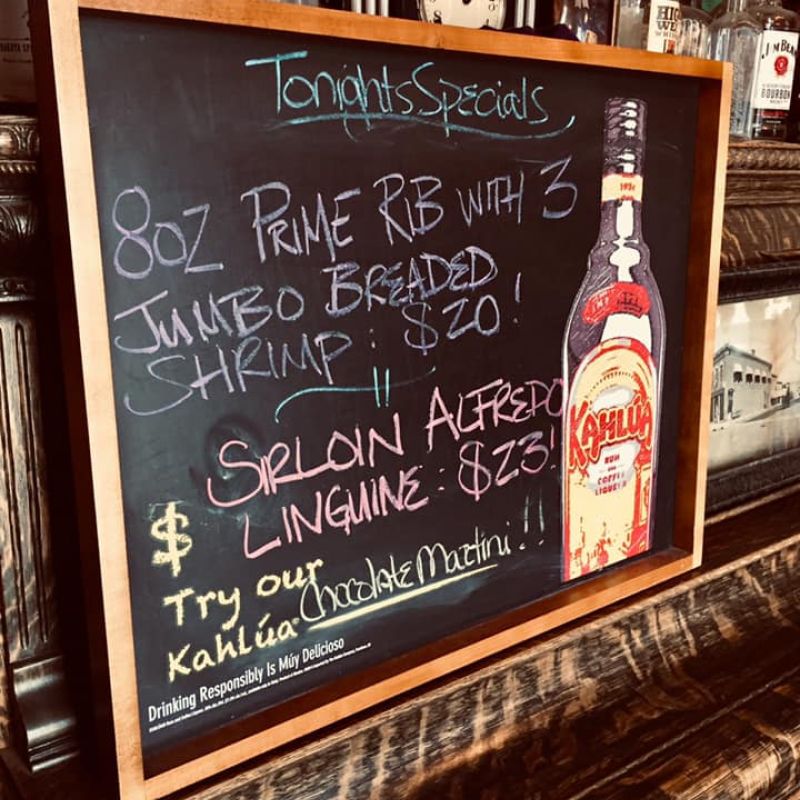 Tonights Specials
8oz PRIME RIB WITH 3
JUMBO BREADED
SHRIMP : $20!
SIRLOIN ALFREDO
LINGUINE : $23!
$
Try our
Kahlúa Chocolate Martini !!
Drinking Responsibly Is Múy Delicioso
KAHLÚA
RUM
AND
COFFEE
LIQUEUR
JIM BEAM
BOURBON